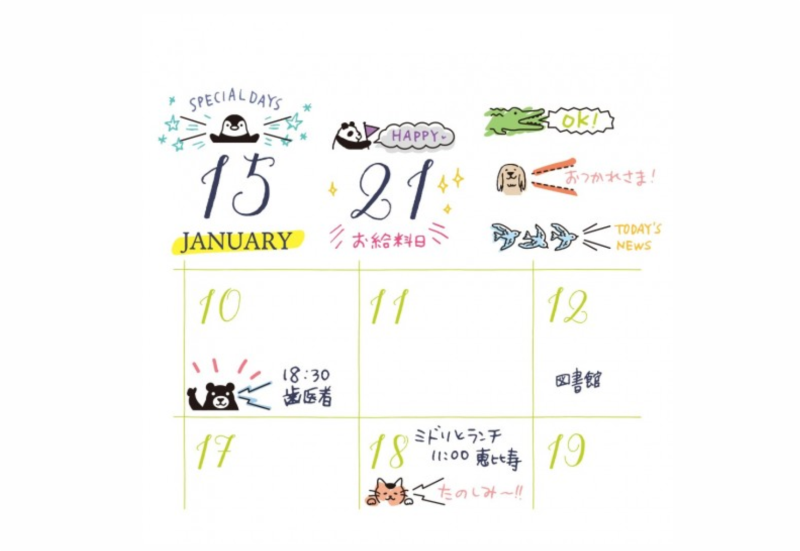 SPECIAL DAYS
15
JANUARY
HAPPY
21
お給料日
OK!
おつかれさま!
TODAY'S
NEWS
10
11
12
18:30
歯医者
図書館
17
18
ミドリとランチ
11:00 恵比寿
たのしみ〜!!
19